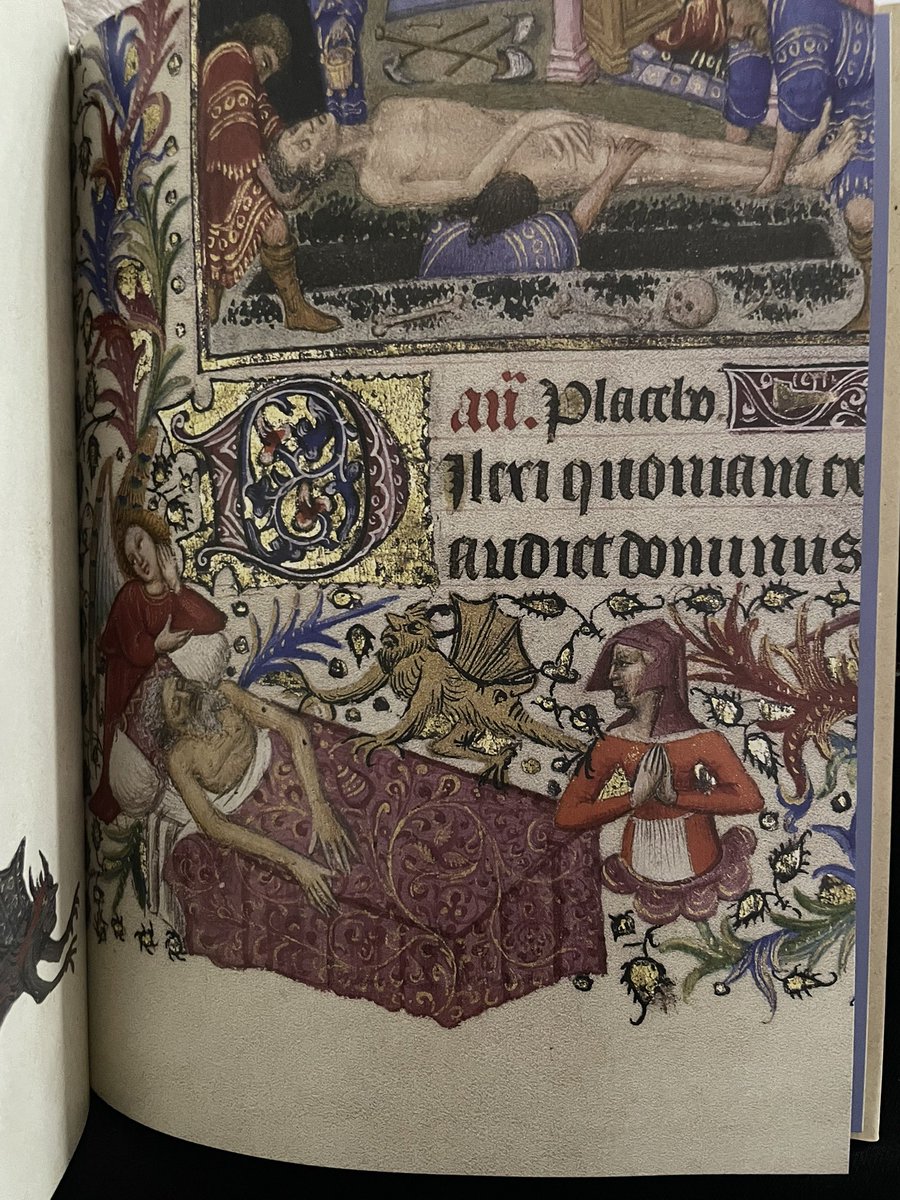 añ. Placebo
DIlexi quoniam ex
audiet dominus